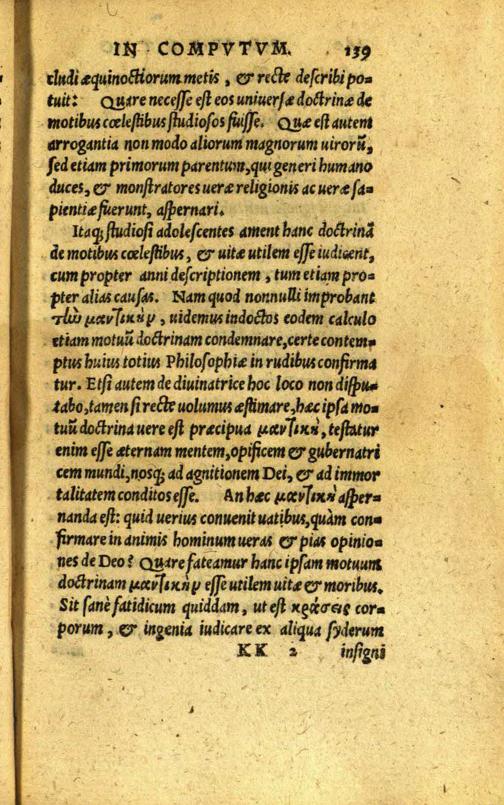 IN COMPVTVM. 139
cludi æquinoctiorum metis, & recte describi po=
tuit: Quare necesse est eos uniuersæ doctrinæ de
motibus cœlestibus studiosos fuisse. Quæ est autem
arrogantia non modo aliorum magnorum uirorũ,
sed etiam primorum parentum, qui generi humano
duces, & monstratores ueræ religionis ac ueræ sa=
pientiæ fuerunt, aspernari.
Itaq; studiosi adolescentes ament hanc doctrinã
de motibus cœlestibus, & uitæ utilem esse iudicent,
cum propter anni descriptionem, tum etiam pro=
pter alias causas. Nam quod nonnulli improbant
τὴν μαντικὴν, uidemus indoctos eodem calculo
etiam motuũ doctrinam condemnare, certe contem=
ptus huius totius Philosophiæ in rudibus confirma
tur. Etsi autem de diuinatrice hoc loco non dispu=
tabo, tamen si recte uolumus æstimare, hæc ipsa mo=
tuũ doctrina uere est præcipua μαντικὴ, testatur
enim esse æternam mentem, opificem & gubernatri
cem mundi, nosq; ad agnitionem Dei, & ad immor
talitatem conditos esse. An hæc μαντικὴ asper=
nanda est: quid uerius conuenit uatibus, quàm con=
firmare in animis hominum ueras & pias opinio=
nes de Deo? Quare fateamur hanc ipsam motuum
doctrinam μαντικὴν esse utilem uitæ & moribus.
Sit sanè fatidicum quiddam, ut est κράσεις cor=
porum, & ingenia iudicare ex aliqua syderum
KK 2 insigni